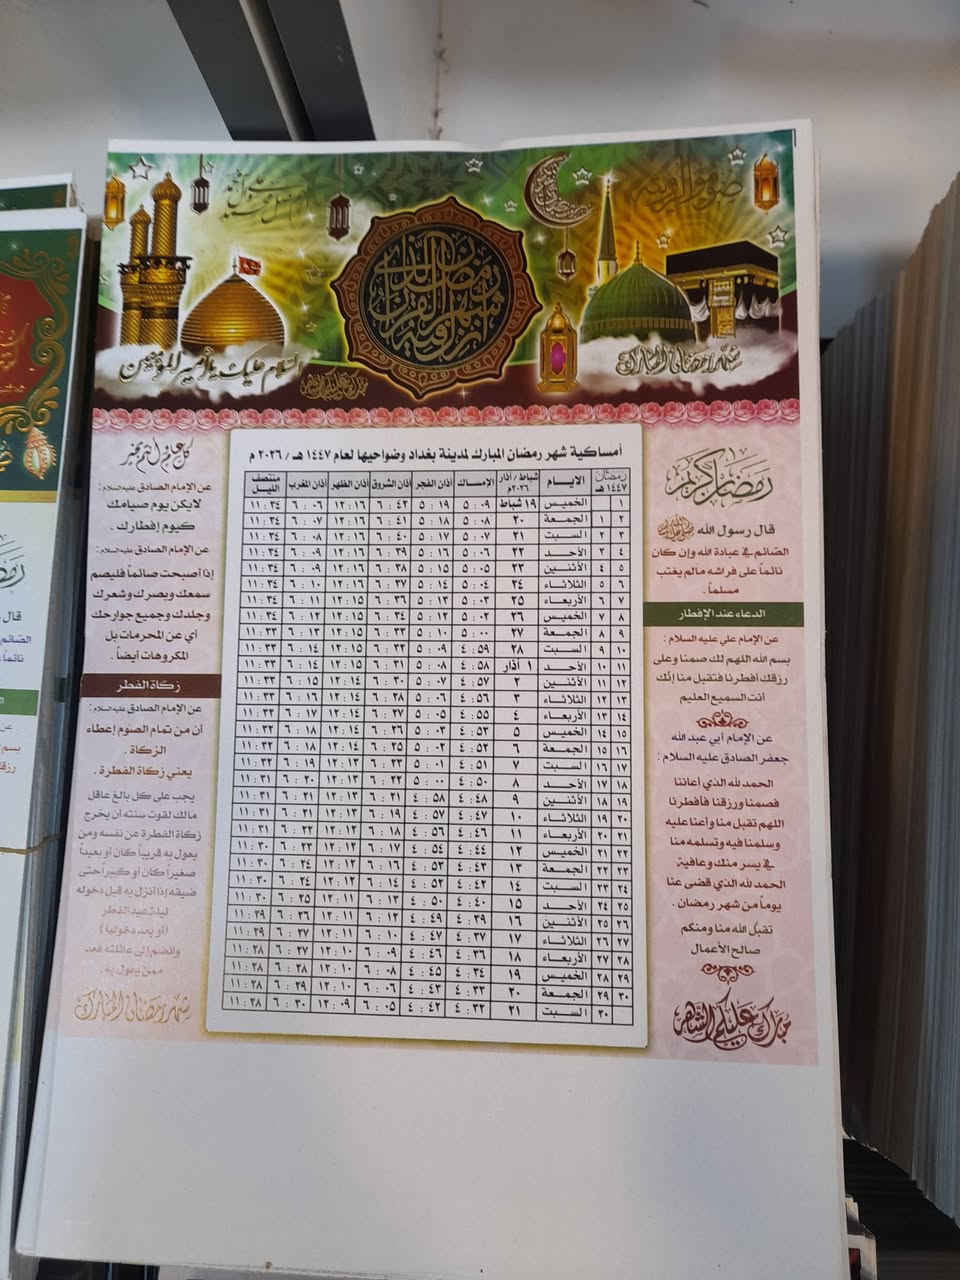 شهر رمضان الذي أنزل فيه القرآن
السلام عليك يا أمير المؤمنين
مبارك عليكم الشهر
شهر رمضان المبارك
رمضان كريم
قال رسول الله
الصائم في عبادة الله وإن كان
نائماً على فراشه مالم يغتب
مسلماً.
الدعاء عند الإفطار
عن الإمام علي عليه السلام :
بسم الله اللهم لك صمنا وعلى
رزقك افطرنا فتقبل منا إنك
انت السميع العليم
عن الإمام أبي عبد الله
جعفر الصادق عليه السلام :
الحمد لله الذي أعاننا
فصمنا ورزقنا فأفطرنا
اللهم تقبل منا وأعنا عليه
وسلمنا فيه وتسلمه منا
في يسر منك وعافية
الحمد لله الذي قضى عنا
يوماً من شهر رمضان .
تقبل الله منا ومنكم
صالح الأعمال
مبارك عليكم الشهر
أمساكية شهر رمضان المبارك لمدينة بغداد وضواحيها لعام ١٤٤٧ هـ / ٢٠٢٦ م
رمضان ١٤٤٧ هـ الايام شباط / آذار ٢٠٢٦م الامساك أذان الفجر أذان الشروق أذان الظهر أذان المغرب منتصف الليل
١ الخميس ١٩ شباط ٥:٠٩ ٥:١٩ ٦:٤٢ ١٢:١٦ ٦:٠٦ ١١:٣٤
٢ ١ الجمعة ٢٠ ٥:٠٨ ٥:١٨ ٦:٤١ ١٢:١٦ ٦:٠٧ ١١:٣٤
٣ ٢ السبت ٢١ ٥:٠٧ ٥:١٧ ٦:٤٠ ١٢:١٦ ٦:٠٨ ١١:٣٤
٤ ٣ الأحد ٢٢ ٥:٠٦ ٥:١٦ ٦:٣٩ ١٢:١٦ ٦:٠٩ ١١:٣٤
٥ ٤ الأثنين ٢٣ ٥:٠٥ ٥:١٥ ٦:٣٨ ١٢:١٦ ٦:٠٩ ١١:٣٤
٦ ٥ الثلاثاء ٢٤ ٥:٠٤ ٥:١٤ ٦:٣٧ ١٢:١٦ ٦:١٠ ١١:٣٤
٧ ٦ الأربعاء ٢٥ ٥:٠٣ ٥:١٣ ٦:٣٦ ١٢:١٥ ٦:١١ ١١:٣٤
٨ ٧ الخميس ٢٦ ٥:٠٢ ٥:١٢ ٦:٣٤ ١٢:١٥ ٦:١٢ ١١:٣٤
٩ ٨ الجمعة ٢٧ ٥:٠٠ ٥:١٠ ٦:٣٣ ١٢:١٥ ٦:١٣ ١١:٣٣
١٠ ٩ السبت ٢٨ ٤:٥٩ ٥:٠٩ ٦:٣٢ ١٢:١٥ ٦:١٤ ١١:٣٣
١١ ١٠ الأحد ١ آذار ٤:٥٨ ٥:٠٨ ٦:٣١ ١٢:١٥ ٦:١٤ ١١:٣٣
١٢ ١١ الأثنين ٢ ٤:٥٧ ٥:٠٧ ٦:٣٠ ١٢:١٤ ٦:١٥ ١١:٣٣
١٣ ١٢ الثلاثاء ٣ ٤:٥٦ ٥:٠٦ ٦:٢٨ ١٢:١٤ ٦:١٦ ١١:٣٣
١٤ ١٣ الأربعاء ٤ ٤:٥٥ ٥:٠٥ ٦:٢٧ ١٢:١٤ ٦:١٧ ١١:٣٢
١٥ ١٤ الخميس ٥ ٤:٥٣ ٥:٠٣ ٦:٢٦ ١٢:١٤ ٦:١٨ ١١:٣٢
١٦ ١٥ الجمعة ٦ ٤:٥٢ ٥:٠٢ ٦:٢٥ ١٢:١٤ ٦:١٨ ١١:٣٢
١٧ ١٦ السبت ٧ ٤:٥١ ٥:٠١ ٦:٢٣ ١٢:١٣ ٦:١٩ ١١:٣٢
١٨ ١٧ الأحد ٨ ٤:٥٠ ٥:٠٠ ٦:٢٢ ١٢:١٣ ٦:٢٠ ١١:٣١
١٩ ١٨ الأثنين ٩ ٤:٤٨ ٤:٥٨ ٦:٢١ ١٢:١٣ ٦:٢١ ١١:٣١
٢٠ ١٩ الثلاثاء ١٠ ٤:٤٧ ٤:٥٧ ٦:١٩ ١٢:١٣ ٦:٢١ ١١:٣١
٢١ ٢٠ الأربعاء ١١ ٤:٤٦ ٤:٥٦ ٦:١٨ ١٢:١٢ ٦:٢٢ ١١:٣١
٢٢ ٢١ الخميس ١٢ ٤:٤٤ ٤:٥٤ ٦:١٧ ١٢:١٢ ٦:٢٣ ١١:٣٠
٢٣ ٢٢ الجمعة ١٣ ٤:٤٣ ٤:٥٣ ٦:١٦ ١٢:١٢ ٦:٢٤ ١١:٣٠
٢٤ ٢٣ السبت ١٤ ٤:٤٢ ٤:٥٢ ٦:١٤ ١٢:١٢ ٦:٢٤ ١١:٣٠
٢٥ ٢٤ الأحد ١٥ ٤:٤٠ ٤:٥٠ ٦:١٣ ١٢:١١ ٦:٢٥ ١١:٣٠
٢٦ ٢٥ الأثنين ١٦ ٤:٣٩ ٤:٤٩ ٦:١٢ ١٢:١١ ٦:٢٦ ١١:٢٩
٢٧ ٢٦ الثلاثاء ١٧ ٤:٣٧ ٤:٤٧ ٦:١٠ ١٢:١١ ٦:٢٧ ١١:٢٩
٢٨ ٢٧ الأربعاء ١٨ ٤:٣٦ ٤:٤٦ ٦:٠٩ ١٢:١٠ ٦:٢٧ ١١:٢٨
٢٩ ٢٨ الخميس ١٩ ٤:٣٤ ٤:٤٥ ٦:٠٨ ١٢:١٠ ٦:٢٨ ١١:٢٨
٣٠ ٢٩ الجمعة ٢٠ ٤:٣٣ ٤:٤٣ ٦:٠٦ ١٢:١٠ ٦:٢٩ ١١:٢٨
٣٠ السبت ٢١ ٤:٣٢ ٤:٤٢ ٦:٠٥ ١٢:٠٩ ٦:٣٠ ١١:٢٨
كل عام وأنتم بخير
عن الإمام الصادق عليه السلام :
لايكن يوم صيامك
كيوم إفطارك .
عن الإمام الصادق عليه السلام :
إذا أصبحت صائماً فليصم
سمعك وبصرك وشعرك
وجلدك وجميع جوارحك
أي عن المحرمات بل
المكروهات أيضاً .
زكاة الفطر
عن الإمام الصادق عليه السلام :
أن من تمام الصوم إعطاء
الزكاة .
يعني زكاة الفطرة .
يجب على كل بالغ عاقل
مالك لقوت سنته ان يخرج
زكاة الفطرة عن نفسه ومن
يعول به قريباً كان أو بعيداً
صغيراً كان أو كبيراً حتى
ضيفه إذا أنزل به قبل دخوله
ليلة عيد الفطر
(أو بعد دخولها)
وانضم الى عائلته فعد
ممن يعول به .
شهر رمضان المبارك